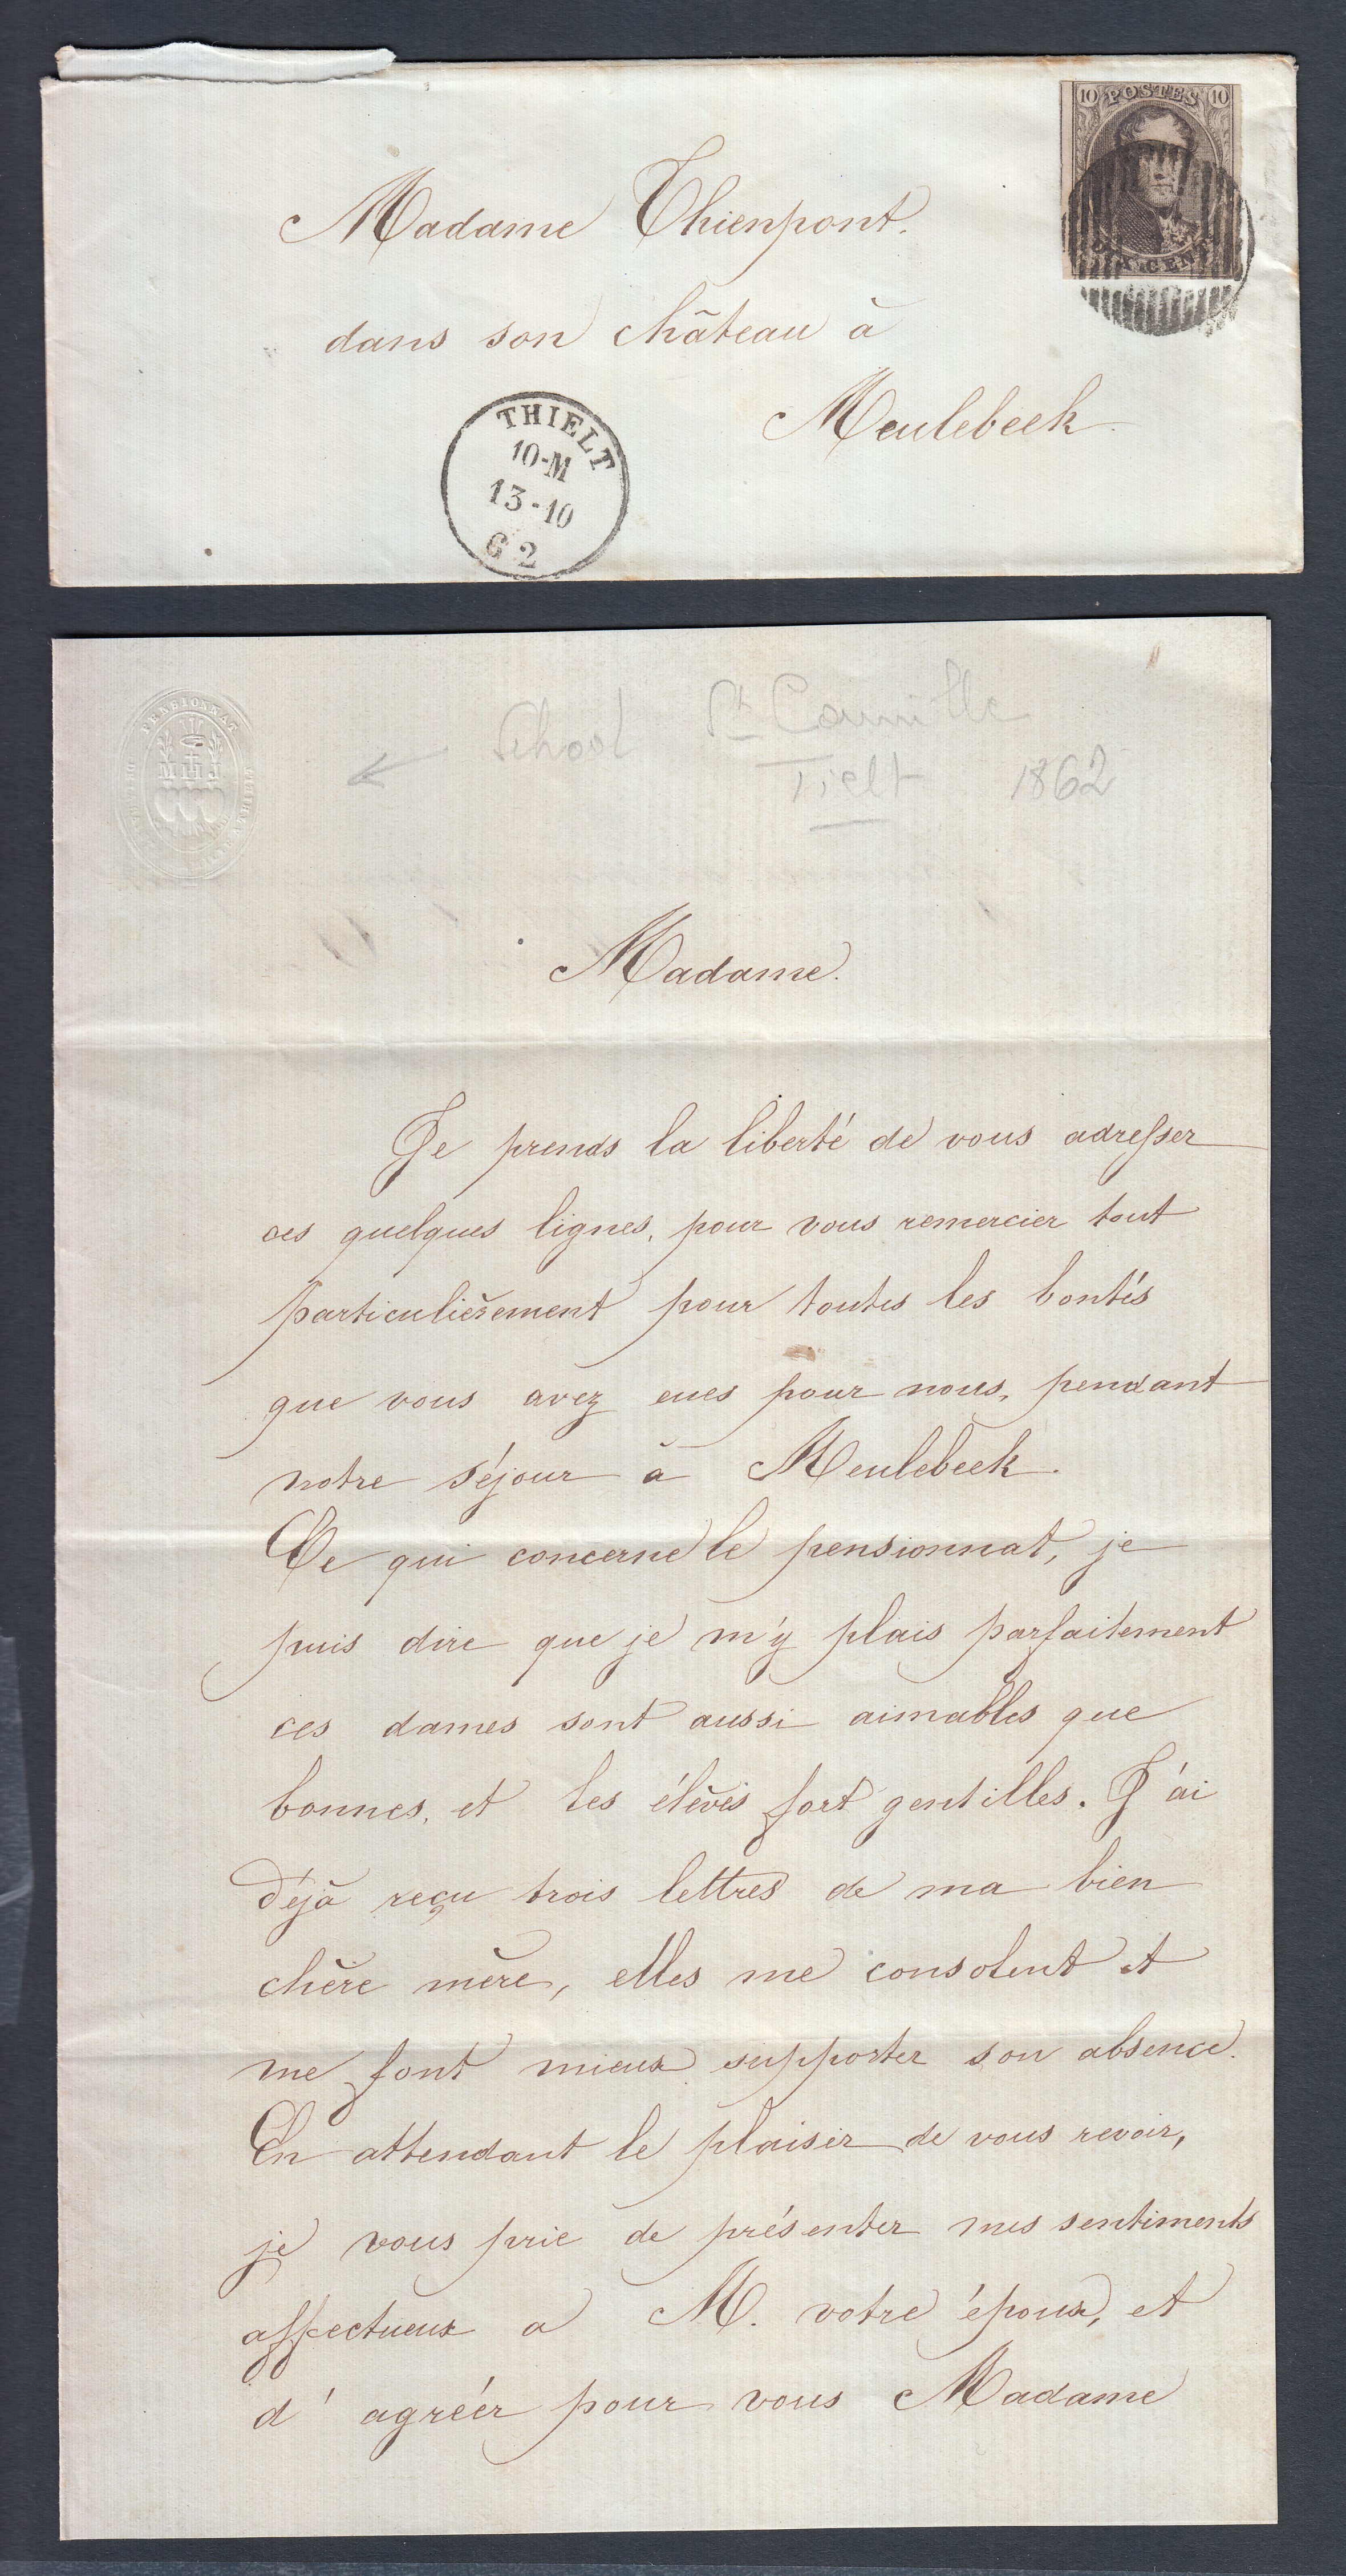 10 POSTES 10
Madame Thienpont.
dans son château à
Meulebeek
THIELT
10-M
13-10
62
PENSIONNAT
M J
School St Camille
Tielt 1862
Madame.
Je prends la liberté de vous adresser
ces quelques lignes, pour vous remercier tout
particulièrement pour toutes les bontés
que vous avez eues pour nous, pendant
notre séjour à Meulebeek.
Ce qui concerne le pensionnat, je
puis dire que je m'y plais parfaitement
ces dames sont aussi aimables que
bonnes, et les élèves fort gentilles. J'ai
déjà reçu trois lettres de ma bien
chère mère, elles me consolent et
me font mieux supporter son absence.
En attendant le plaisir de vous revoir,
je vous prie de présenter mes sentiments
affectueux a M. votre époux, et
d'agréér pour vous Madame